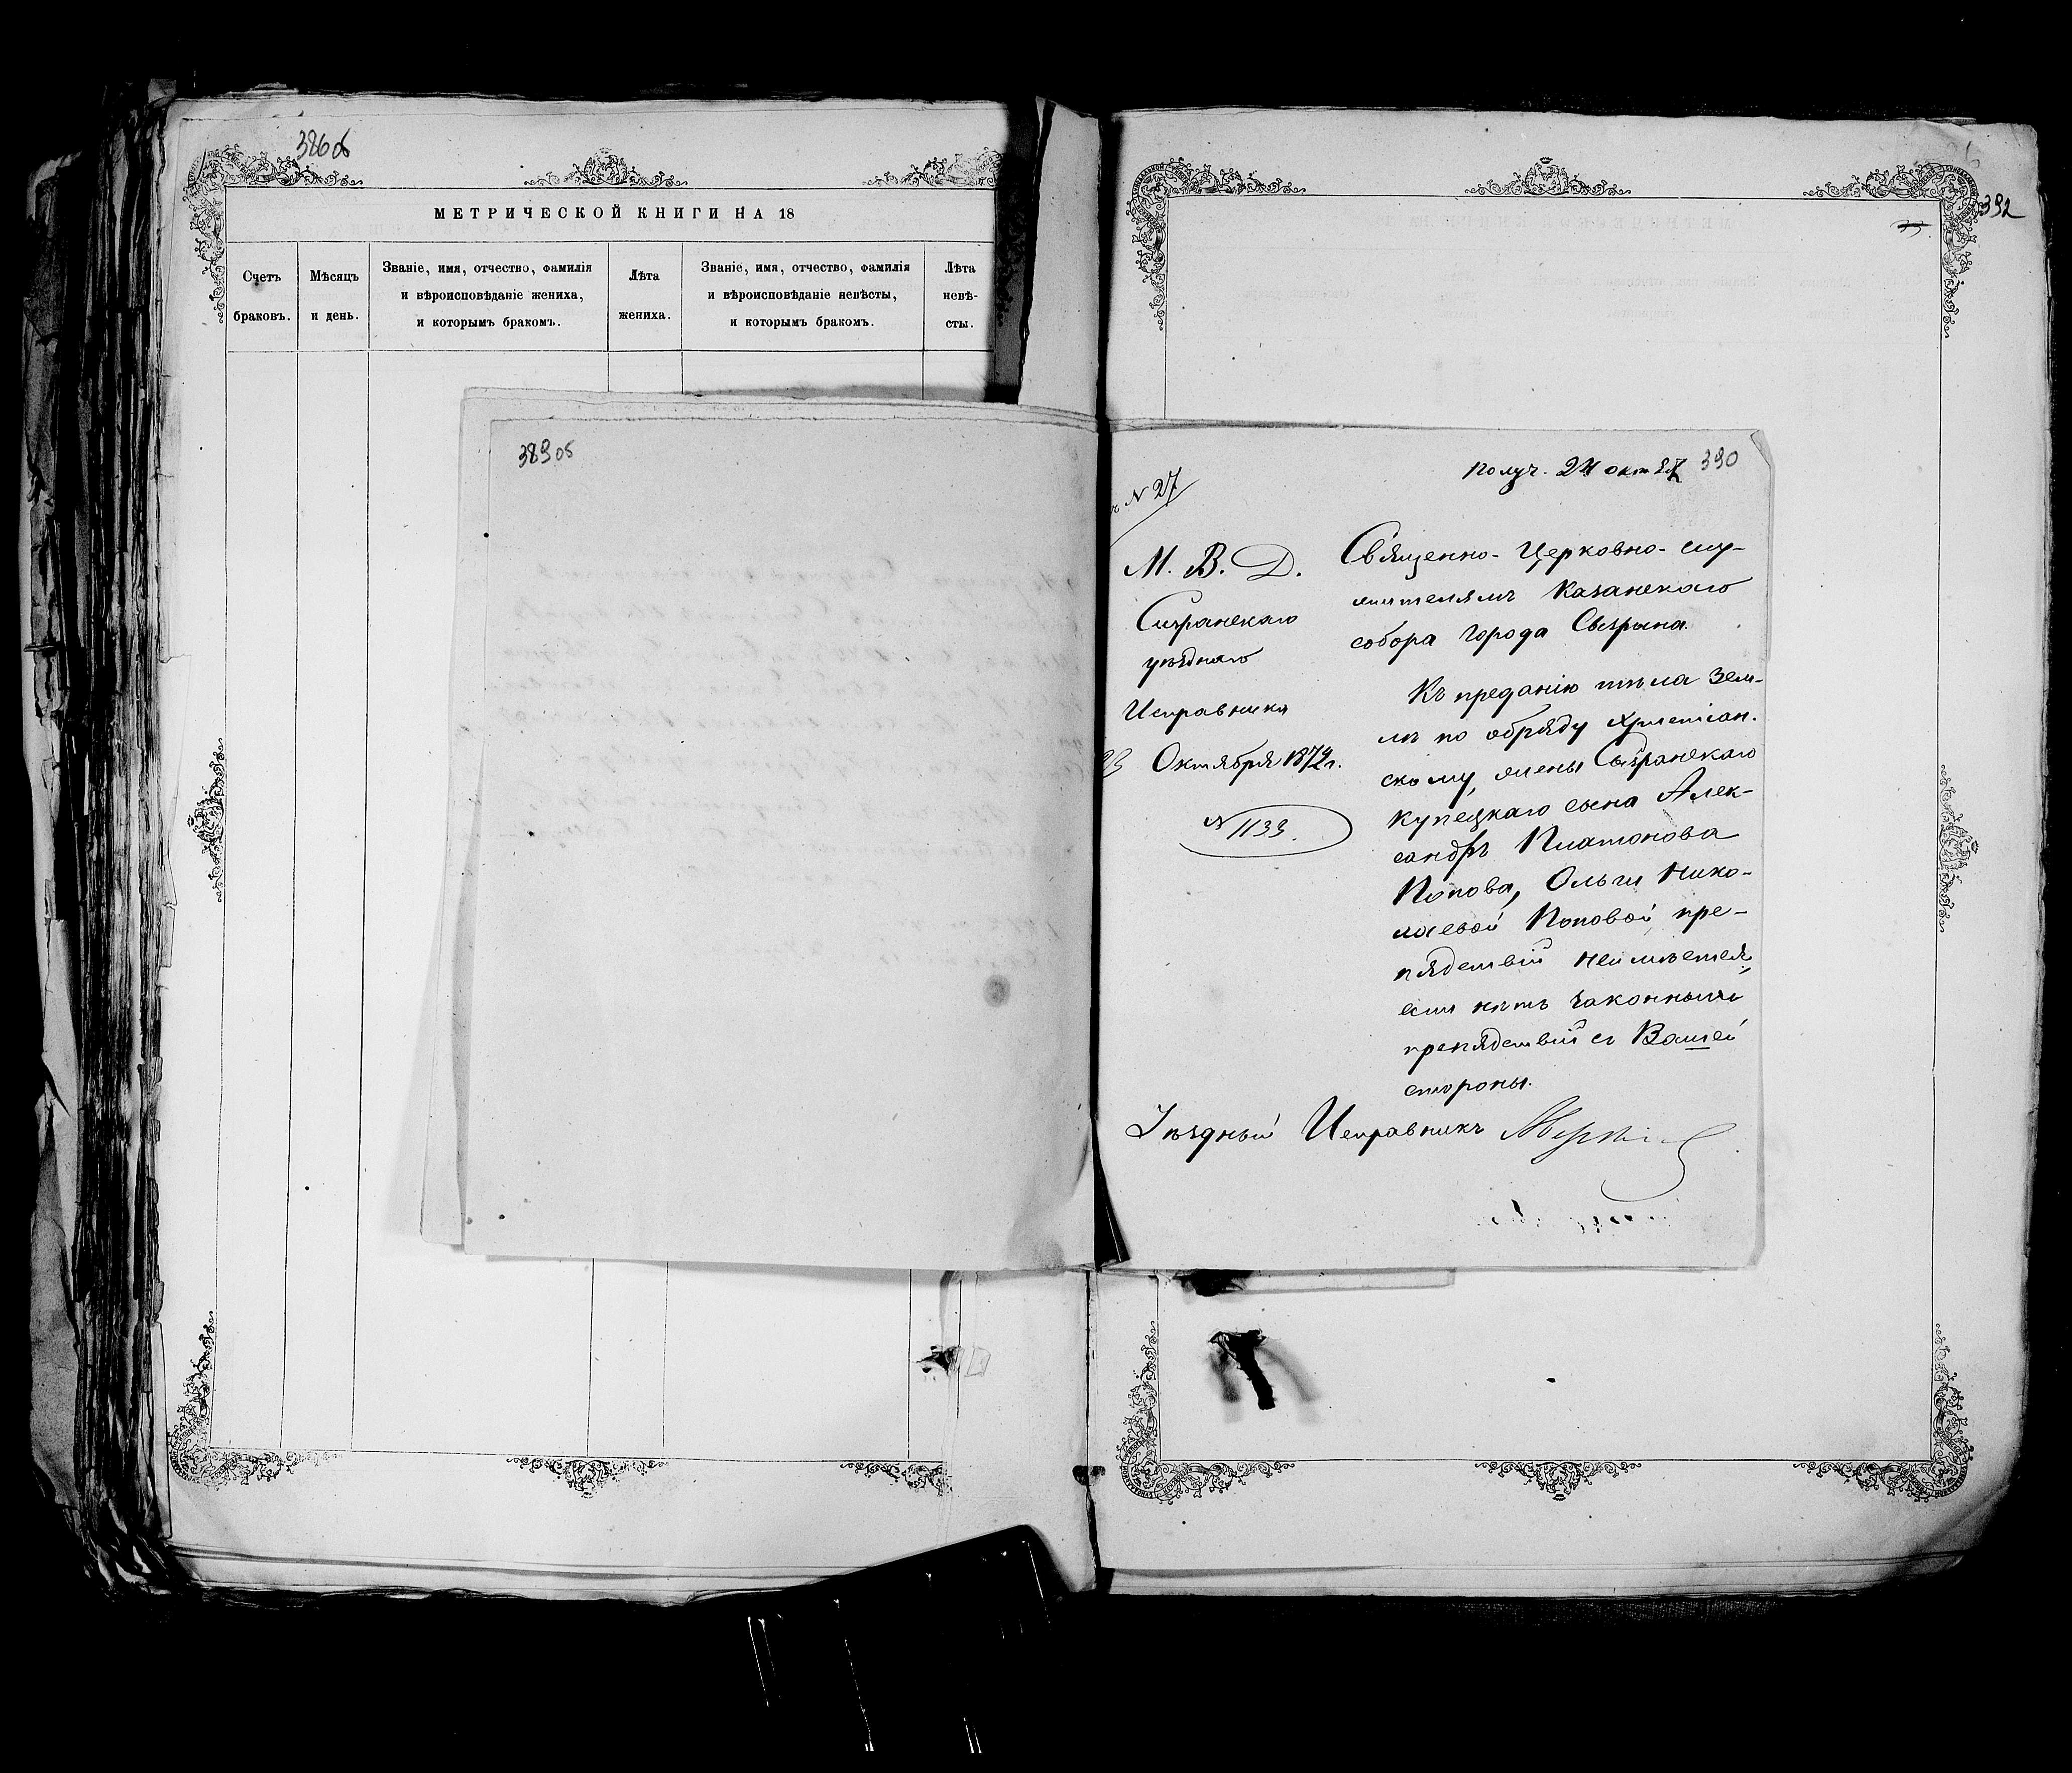 386 об
МЕТРИЧЕСКОЙ КНИГИ НА 18
Счетъ браковъ.
Мѣсяцъ и день.
Званіе, имя, отчество, фамилія
и вѣроисповѣданіе жениха,
и которымъ бракомъ.
Лѣта жениха.
Званіе, имя, отчество, фамилія
и вѣроисповѣданіе невѣсты,
и которымъ бракомъ.
Лѣта невѣ-
сты.
389 об
392
390
Получ. 24 окт
N 27
М. В. Д.
Сызранскаго
уѣзднаго
Исправника
23 Октября 1872 г.
N 1133.
Священно-Церковно-слу-
жителямъ Казанскаго
собора города Сызрана.
Къ преданію тѣла зем-
лѣ по обряду христіан-
скому, жены Сызранскаго
купецкаго сына Алек-
сандръ Платонова
Попова, Ольги Нико-
лаевой Поповой, пре-
пядствій неимѣется,
если нѣтъ законныхъ
препядствій съ Вашей
стороны.
Уѣздный Исправникъ